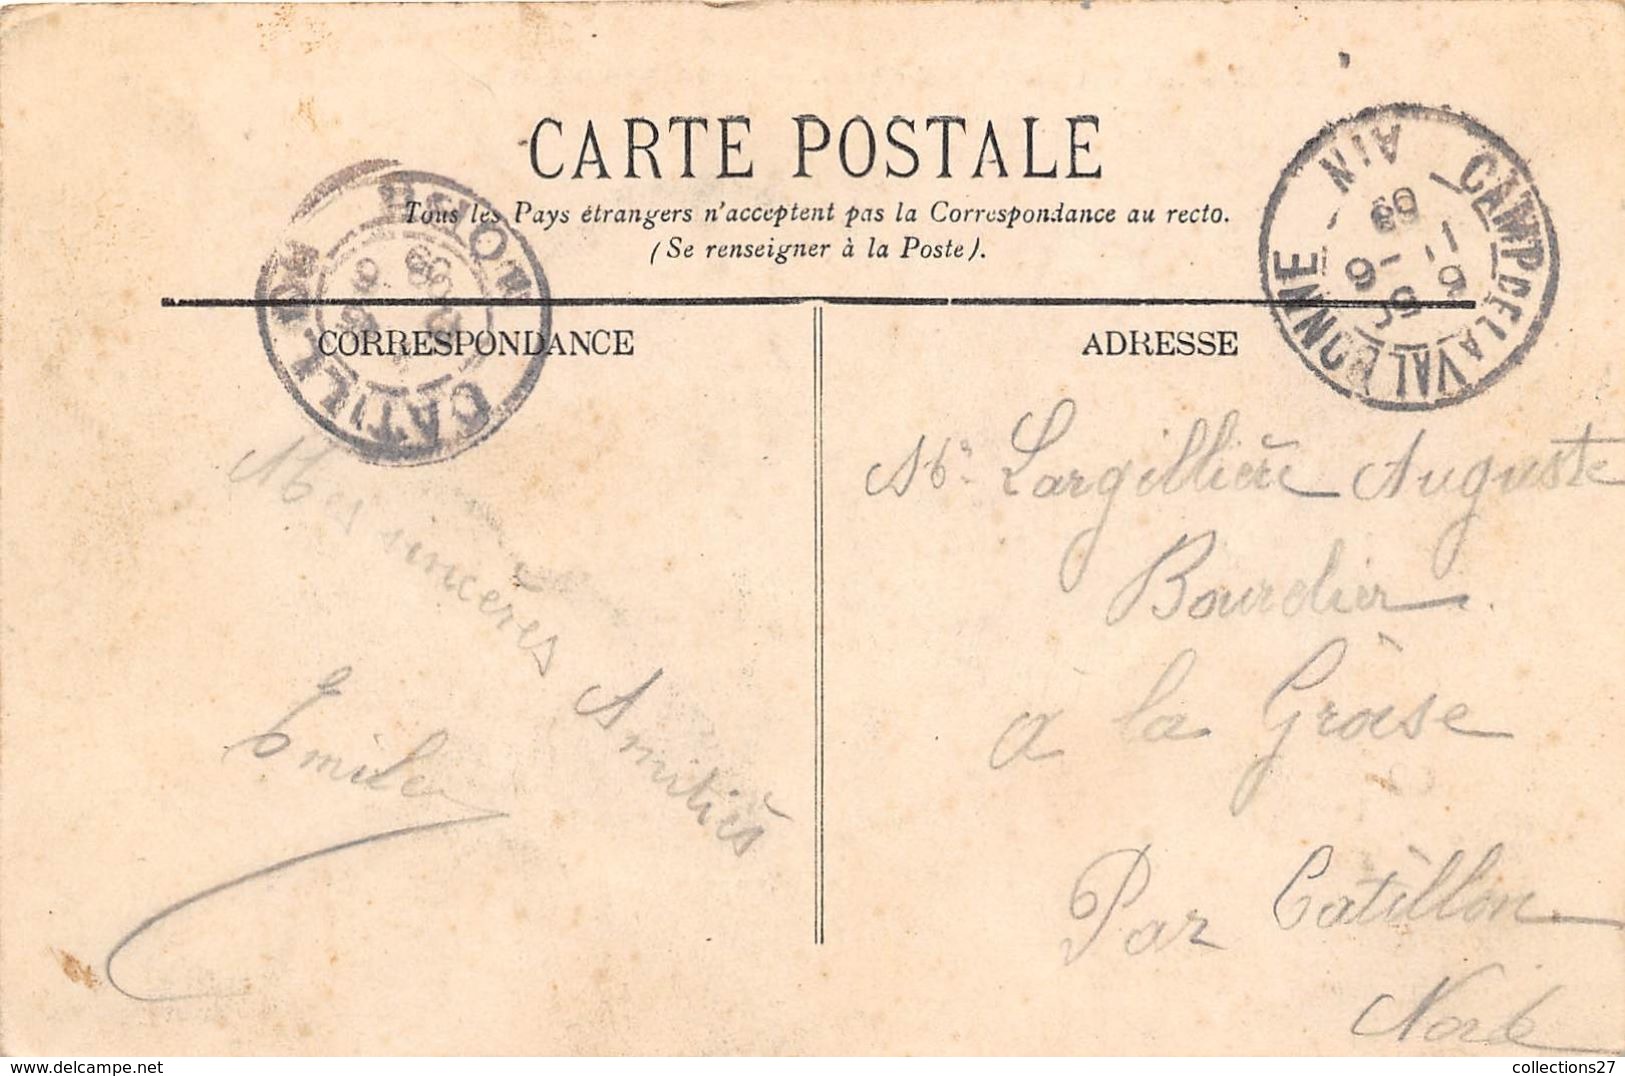 CARTE POSTALE
Tous les Pays étrangers n'acceptent pas la Correspondance au recto.
(Se renseigner à la Poste).
CORRESPONDANCE
Mes sincères Amitiés
Emile
ADRESSE
Mr Largillière Auguste
Bourelier
à la Groise
Par Catillon
Nord
CAMP DE LA VALBONNE
AIN
CATILLON
NORD
collections27